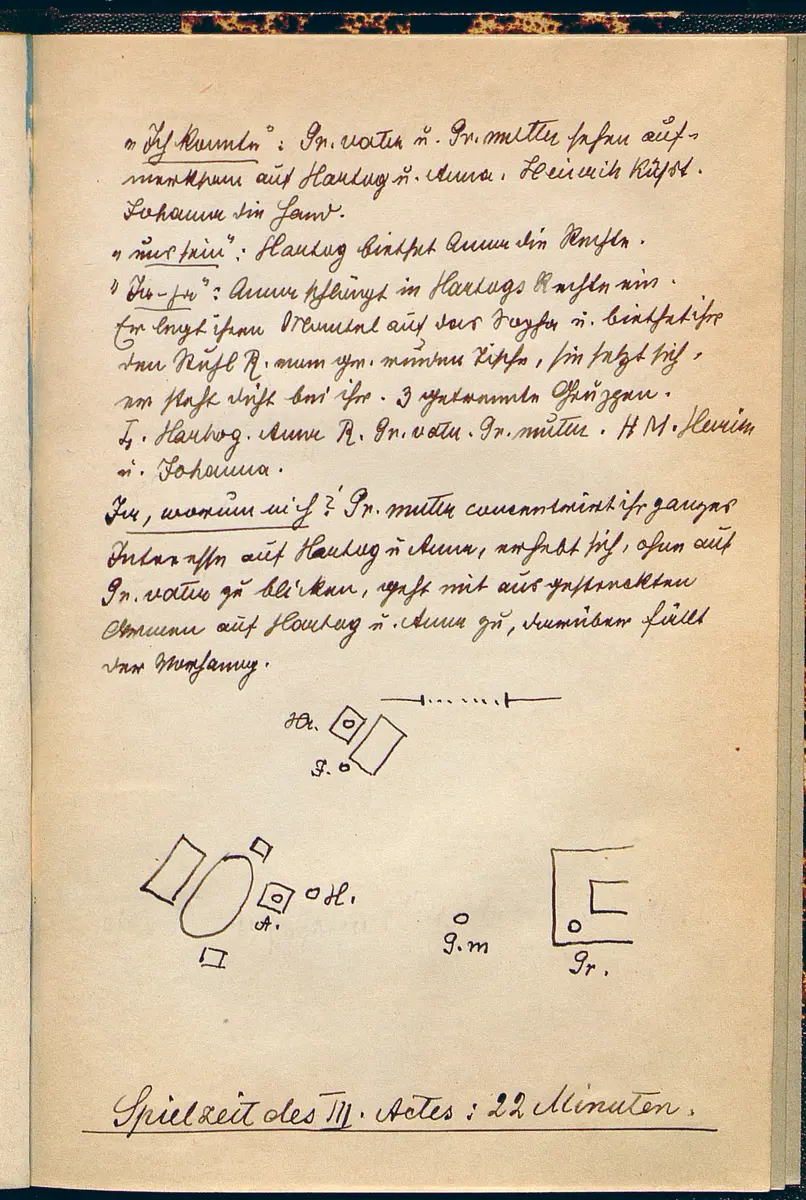 „Ich konnte": Gr. vater u. Gr. mutter sehen auf-
merksam auf Hartog u. Anna. Heinrich küsst.
Johanna die Hand.
„uns sein": Hartog biethet Anna die Rechte.
„Ja-ja": Anna schlängt in Hartogs Rechte ein.
Er legt ihren Mantel auf das Sopha u. biethet ihr
den Stuhl R. vom gr. runden Tische, sie setzt sich,
er steht dicht bei ihr. 3 getrennte Gruppen.
L. Hartog. Anna R. Gr. vater. Gr. mutter. H M. Heinrich
u. Johanna.
Ja, warum nich? Gr. mutter concentrirt ihr ganzes
Interesse auf Hartog u Anna, erhebt sich, ohne auf
Gr. vater zu blicken, geht mit ausgestreckten
Armen auf Hartog u. Anna zu, darüber fällt
der Vorhang.
J.
H.
A.
G. m
Gr.
Spielzeit des III. Actes: 22 Minuten.